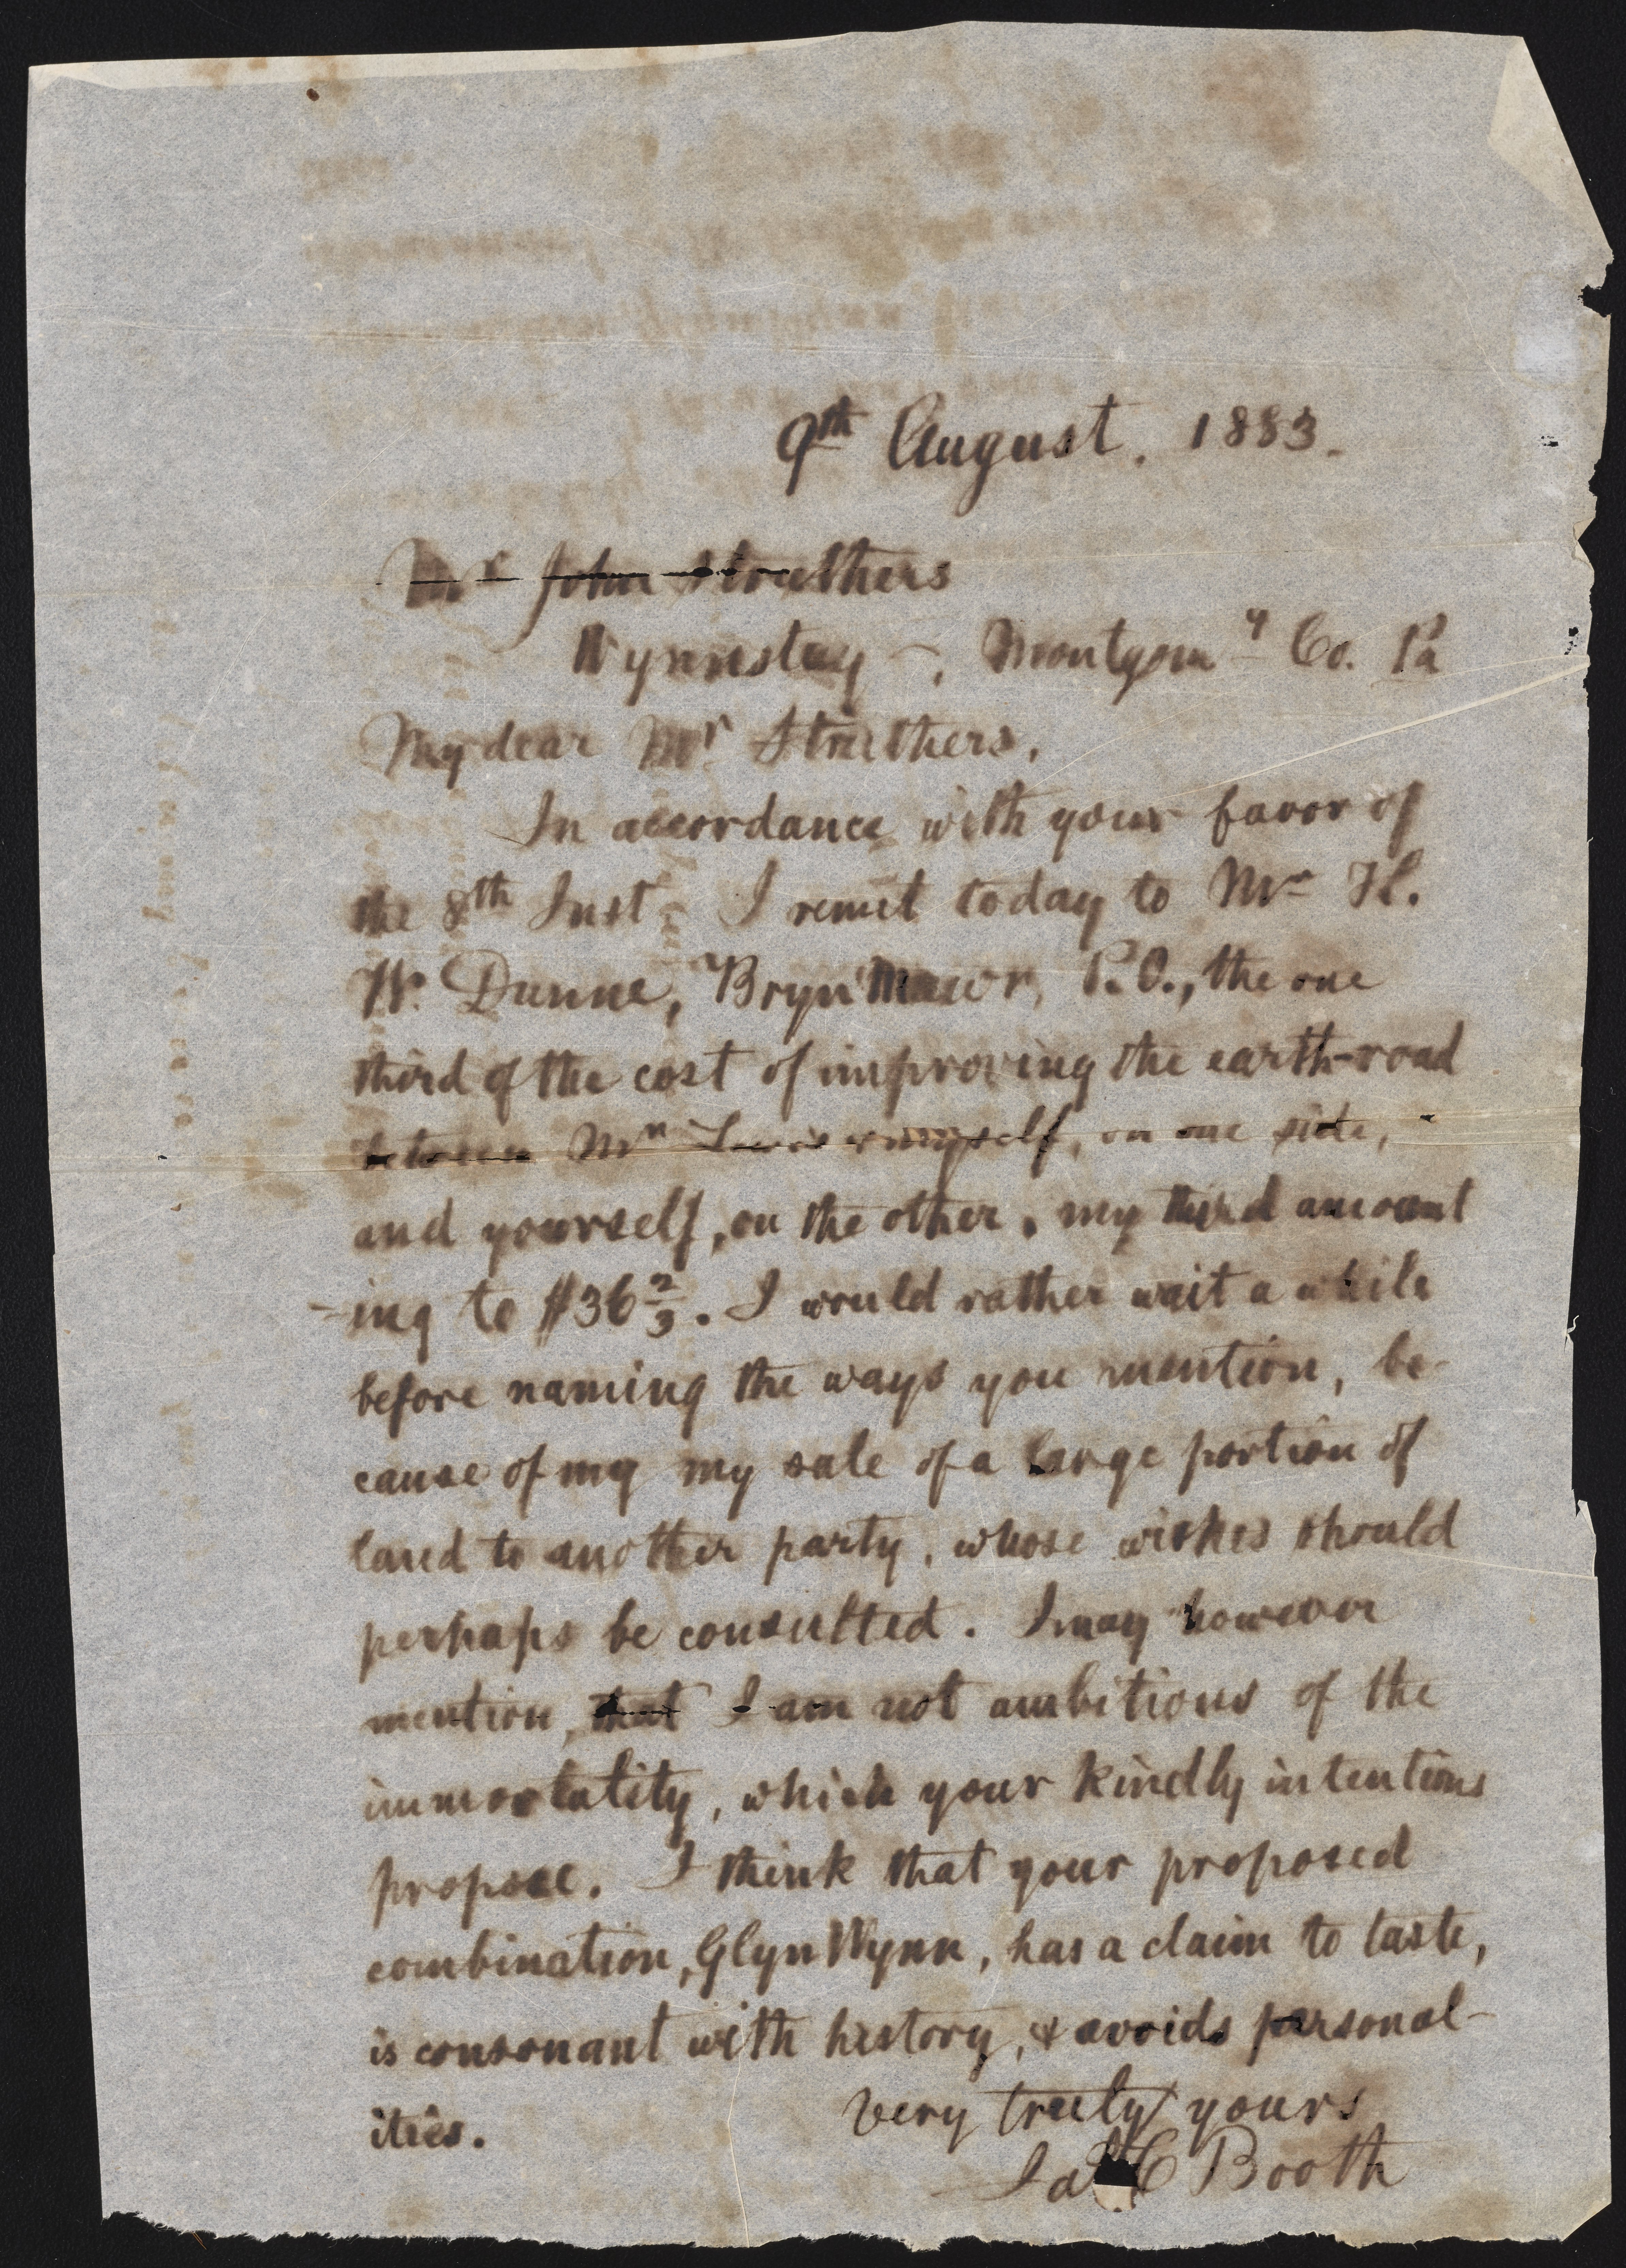 9th August. 1883.
Mr John Struthers
Wynnstay –, Montgomy Co. Pa
My dear Mr Struthers,
In accordance with your favor of
the 8th Inst. I remit today to Mr H.
W. Dunne, Bryn Mawr, P.O., the one
third of the cost of improving the earth-road
between Mr Lewis & myself, on one side,
and yourself, on the other, my third amount
-ing to $36 2/3. I would rather wait a while
before naming the ways you mention, be-
cause of my my sale of a large portion of
land to another party, whose wishes should
perhaps be consulted. I may however
mention, that I am not ambitious of the
immortality, which your kindly intentions
propose. I think that your proposed
combination, Glyn Wynn, has a claim to taste,
is consonant with history, & avoids personal-
ities.
Very truly yours
Jas C Booth